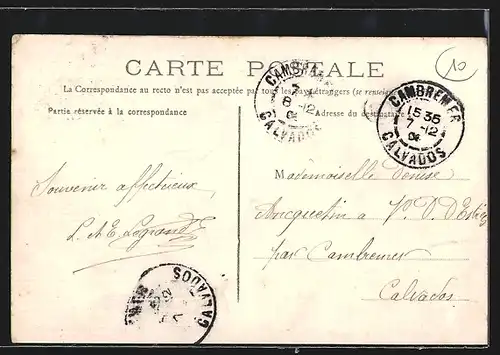 CARTE POSTALE
La Correspondance au recto n'est pas acceptée par tous les pays étrangers (se renseigner
Partie réservée à la correspondance
Adresse du destinataire
CAMBREMER
7
8 -12
CALVADOS
CAMBREMER
15 35
7 -12
CALVADOS
10
Souvenir affectueux
L. A. E. Legrand
Mademoiselle Denise
Ancquetin a V. D. d'
par Cambremer
Calvados
CALVADOS